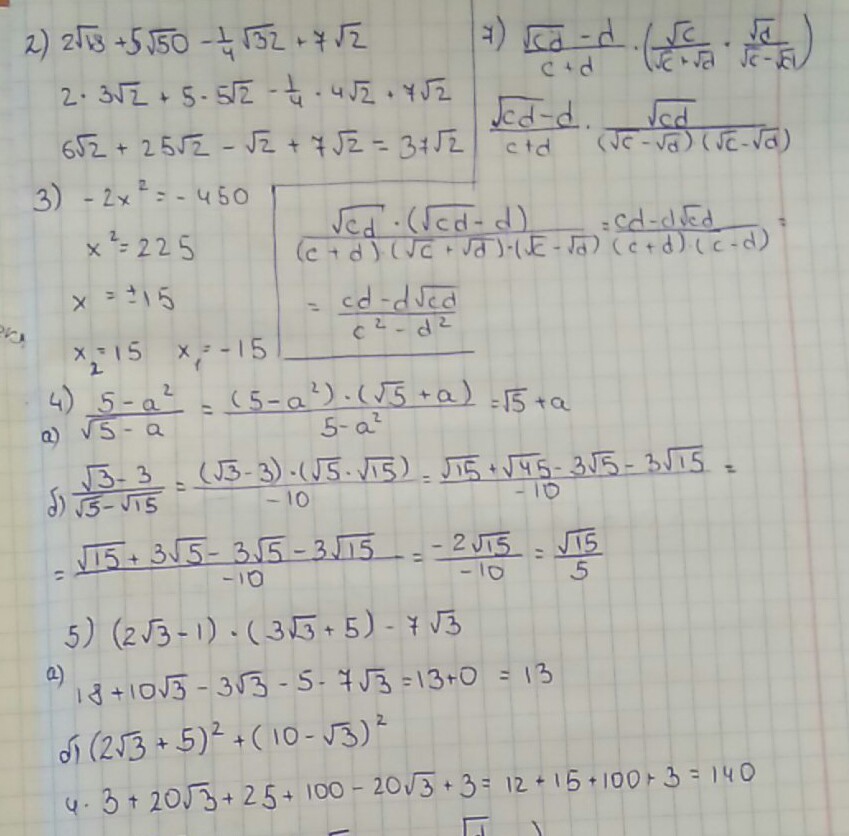 2) 2√18 + 5√50 - 1/4 √32 + 7√2
2 · 3√2 + 5 · 5√2 - 1/4 · 4√2 + 7√2
6√2 + 25√2 - √2 + 7√2 = 37√2
7) (√cd - d)/(c + d) · (√c/(√c + √d) · √d/(√c - √d))
(√cd - d)/(c + d) · √cd/((√c - √d)(√c - √d))
(√cd · (√cd - d))/((c + d) · (√c + √d) · (√c - √d)) = (cd - d√cd)/((c + d) · (c - d)) =
= (cd - d√cd)/(c² - d²)
3) - 2x² = - 450
x² = 225
x = ±15
x₂ = 15 x₁ = -15
4)
а) (5 - a²)/(√5 - a) = ((5 - a²) · (√5 + a))/(5 - a²) = √5 + a
б) (√3 - 3)/(√5 - √15) = ((√3 - 3) · (√5 · √15))/(-10) = (√15 + √45 - 3√5 - 3√15)/(-10) =
= (√15 + 3√5 - 3√5 - 3√15)/(-10) = (-2√15)/(-10) = √15/5
5) (2√3 - 1) · (3√3 + 5) - 7√3
а) 18 + 10√3 - 3√3 - 5 - 7√3 = 13 + 0 = 13
б) (2√3 + 5)² + (10 - √3)²
4 · 3 + 20√3 + 25 + 100 - 20√3 + 3 = 12 + 15 + 100 + 3 = 140